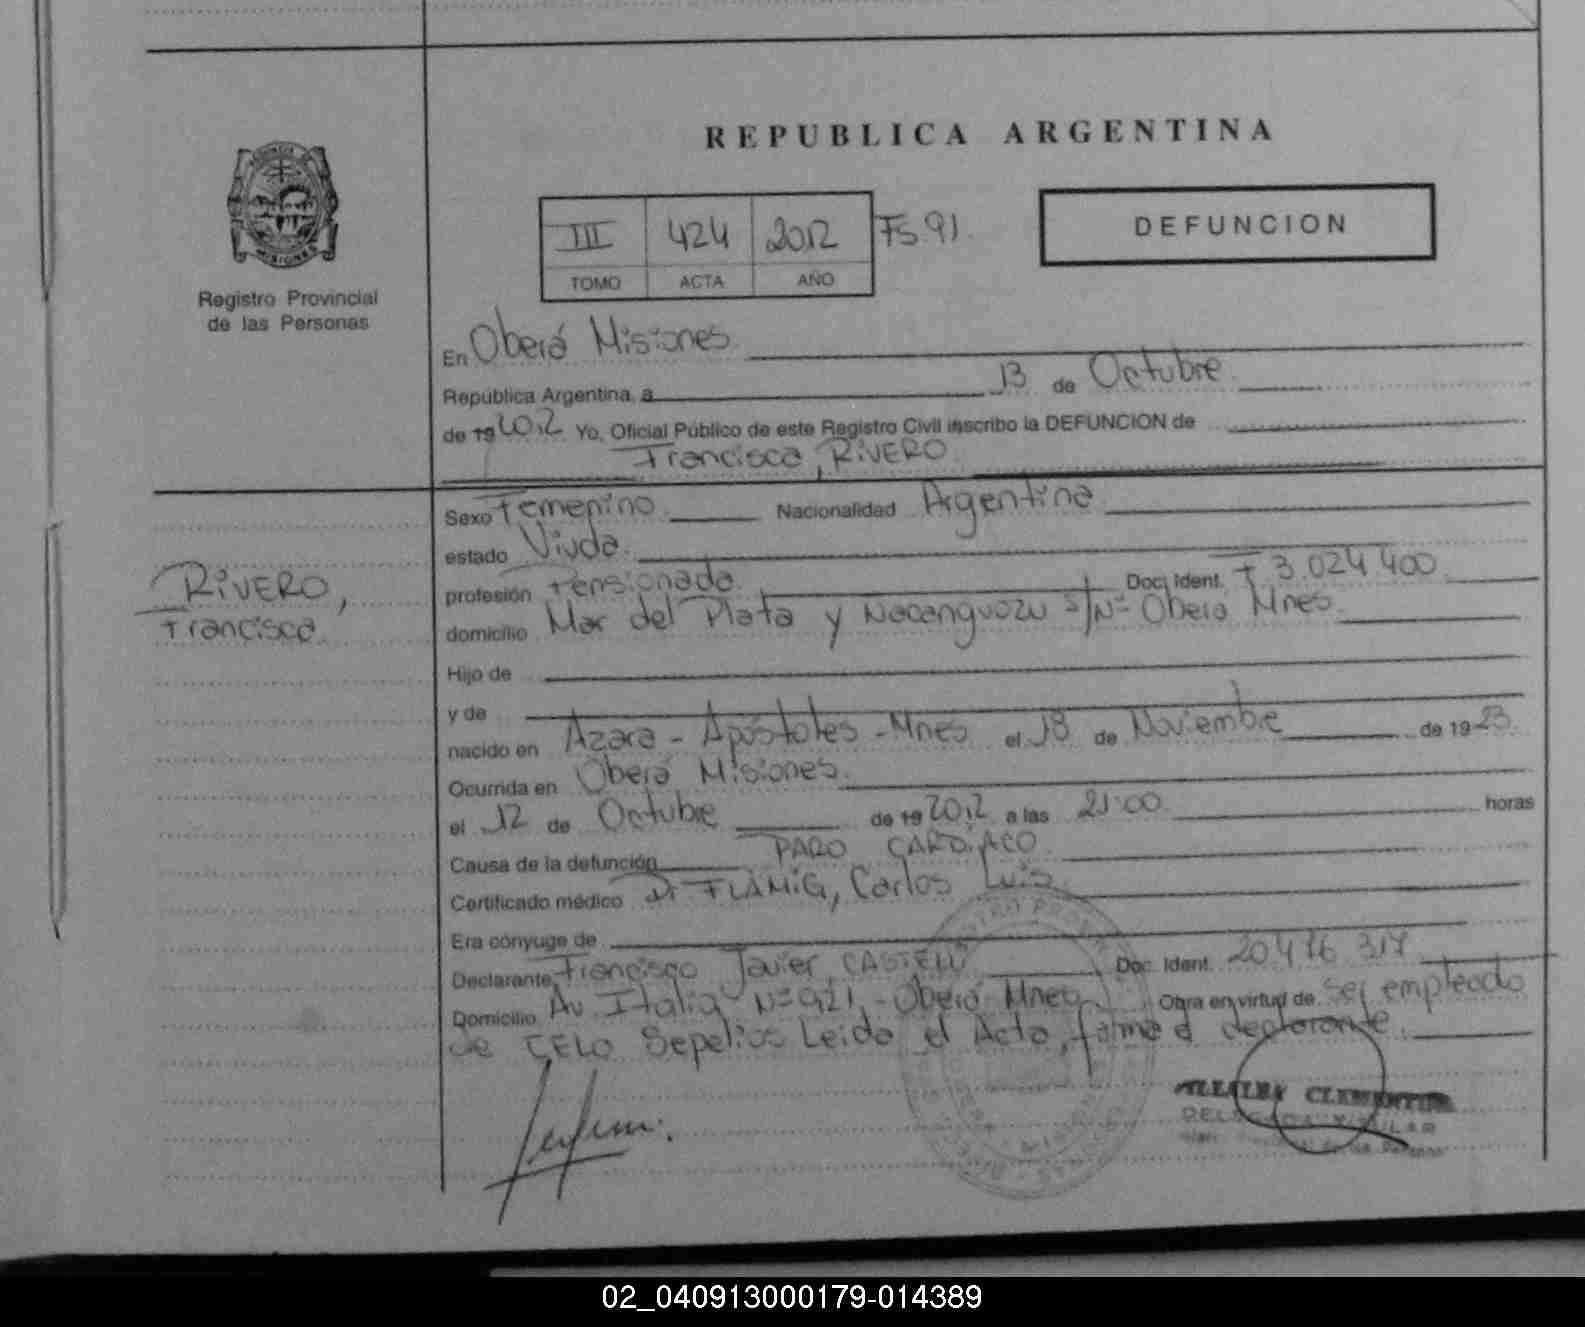 REPUBLICA ARGENTINA
III 424 2012 Fs 91.
TOMO ACTA AÑO
DEFUNCION
Registro Provincial
de las Personas
En Oberá Misiones
República Argentina, a 13 de Octubre
de 19 2012 Yo, Oficial Público de este Registro Civil inscribo la DEFUNCION de
Francisca, RIVERO
Sexo Femenino Nacionalidad Argentina
estado Viuda.
profesión Pensionada Doc. Ident. F 3.024 400
RIVERO,
Francisca
domicilio Mar del Plata y S/Nº Oberá Mnes
Hijo de
y de
nacido en Azara - Apóstoles - Mnes el 18 de Noviembre de 19 23
Ocurrida en Oberá Misiones.
el 12 de Octubre de 19 2012 a las 21:00 horas
Causa de la defunción PARO CARDIACO
Certificado médico Dr FLAMIG, Carlos Luis
Era cónyuge de
Declarante Francisco Javier Doc. Ident. 20 476 317
Domicilio Av Italia Nº 921 - Oberá Mnes Obra en virtud de Ser empleado
de CELO Sepelios Leida el Acta, firma el declarante
02_040913000179-014389